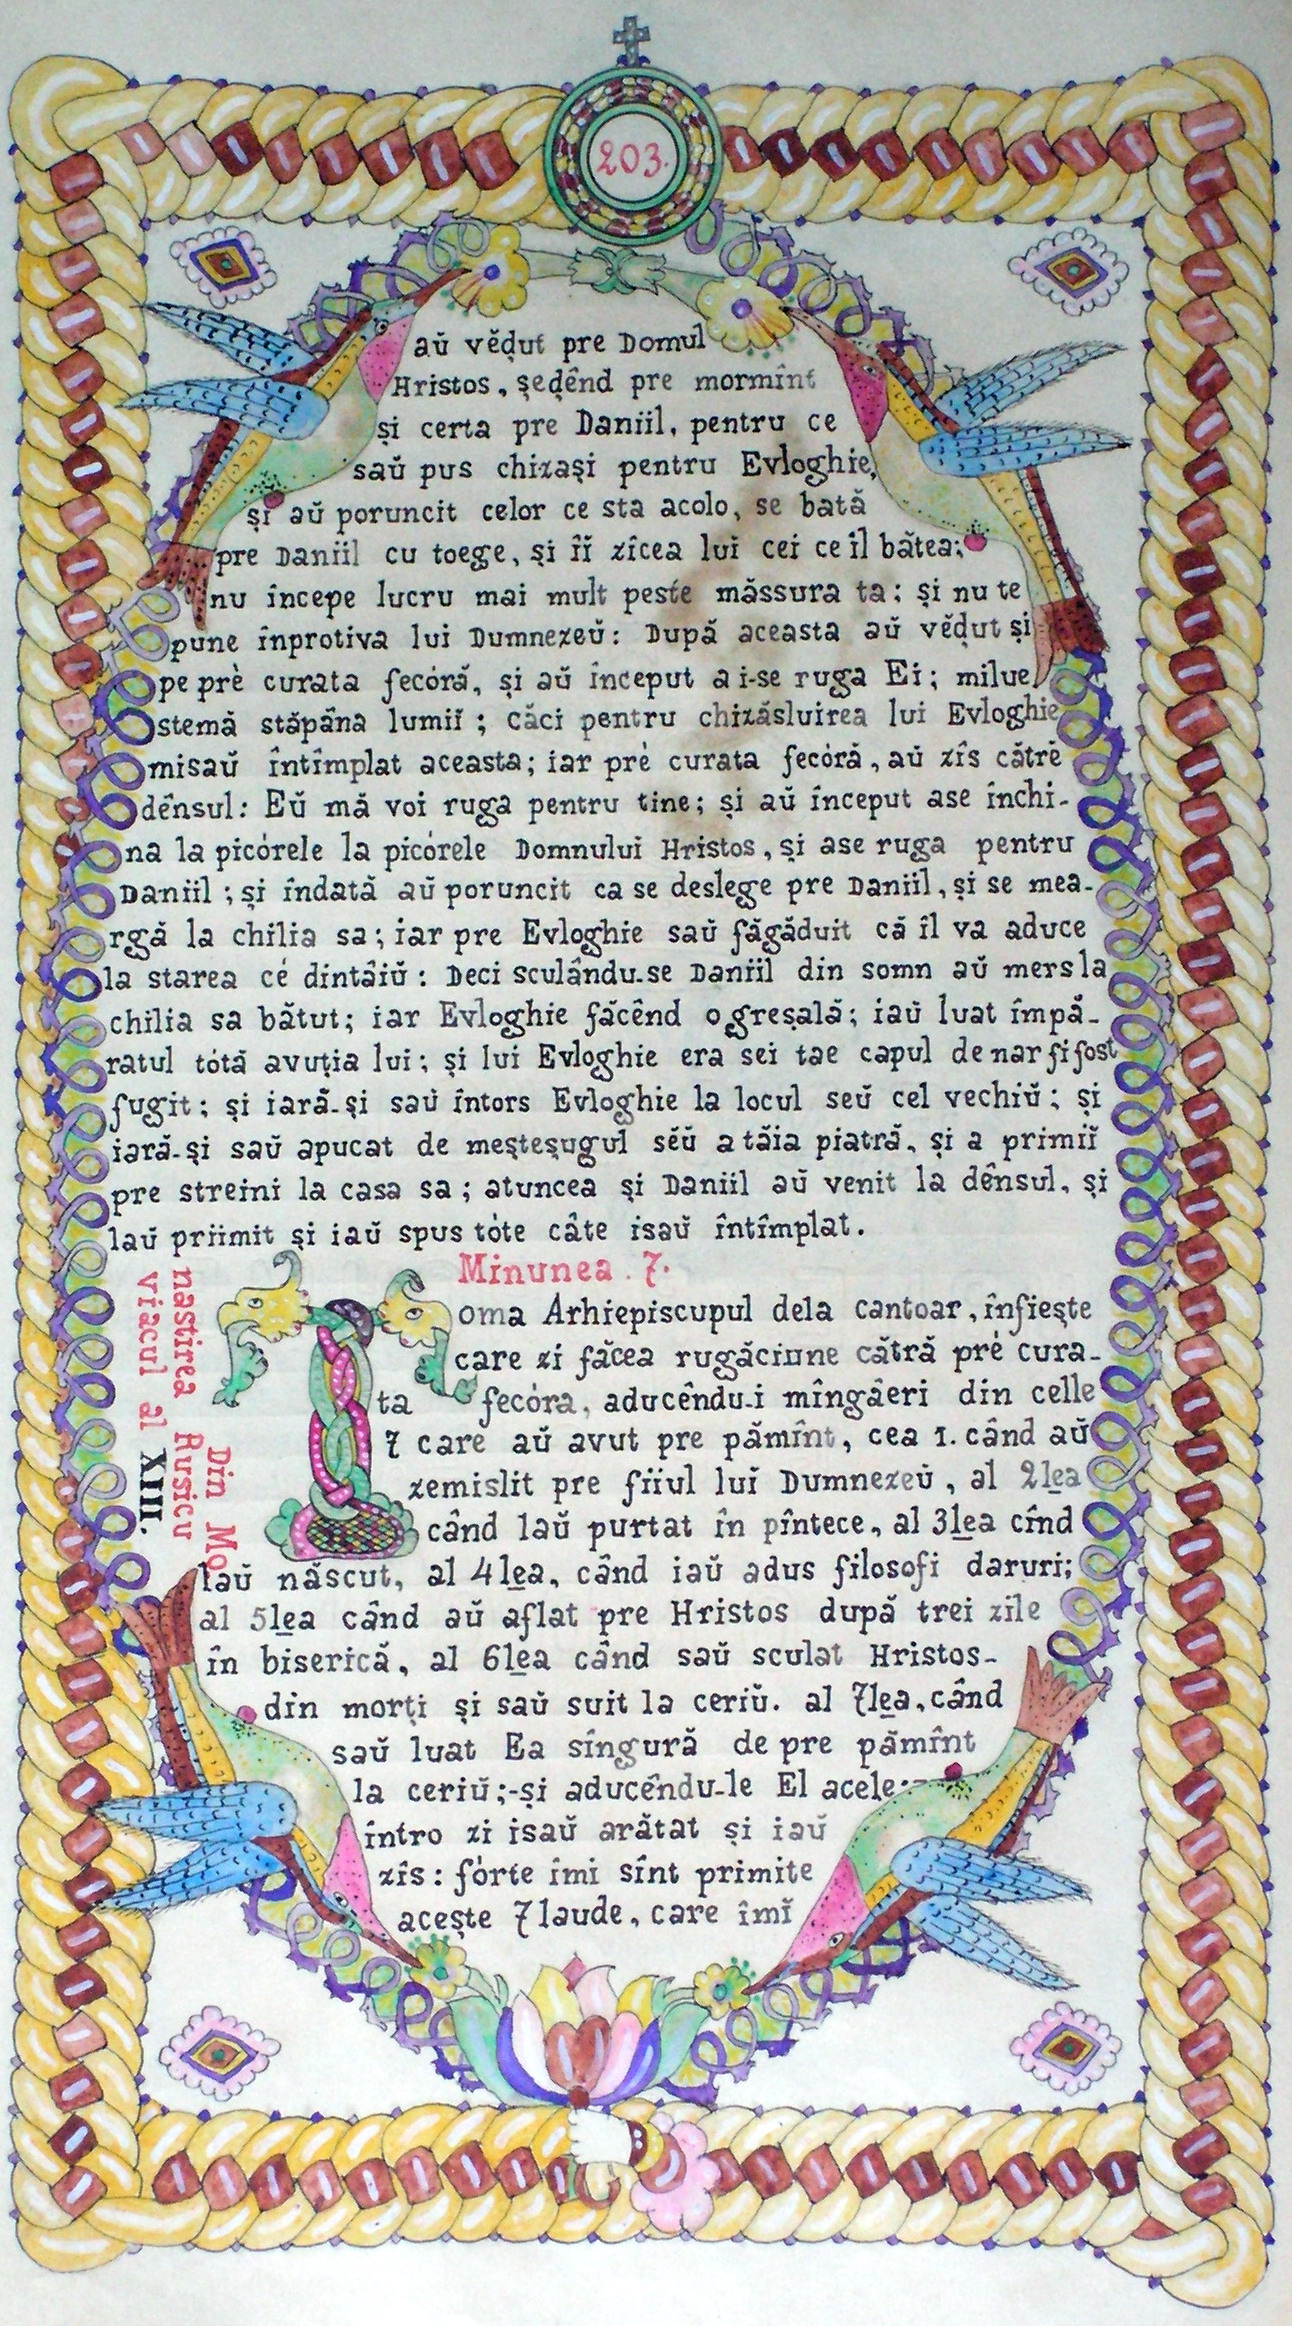 203.
aŭ vĕḑut pre Domul
Hristos, şeḑênd pre mormînt
şi certa pre Daniil, pentru ce
saŭ pus chizaşi pentru Evloghie,
şi aŭ poruncit celor ce sta acolo, se bată
pre Daniil cu toege, şi îĭ zîcea luĭ ceĭ ce îl bătea;
nu începe lucru mai mult peste măssura ta; şi nu te
pune înprotiva lui Dumnezeŭ: După aceasta aŭ vĕḑut şi
pe prè curata fecóră, şi aŭ început a i-se ruga Ei; milue,
stemă stăpâna lumiĭ; căci pentru chizăsluirea lui Evloghie
misaŭ întîmplat aceasta; iar prè curata fecóră, aŭ zîs cătrĕ
dênsul: Eŭ mă voi ruga pentru tine; şi aŭ început ase închi-
na la picórele la picórele Domnului Hristos, şi ase ruga pentru
Daniil; şi îndată aŭ poruncit ca se deslege pre Daniil, şi se mea-
rgă la chilia sa; iar pre Evloghie saŭ făgăduit că îl va aduce
la starea cé dintâiŭ: Deci sculându-se Daniil din somn aŭ mers la
chilia sa bătut; iar Evloghie făcênd o greşală; iaŭ luat împă-
ratul tótă avuţia lui; şi lui Evloghie era sei tae capul de nar fi fost
fugit; şi iară-şi saŭ întors Evloghie la locul seŭ cel vechiŭ; şi
iară-şi saŭ apucat de meşteşugul sĕŭ a tăia piatră, şi a primiĭ
pre streini la casa sa; atuncea şi Daniil aŭ venit la dênsul, şi
laŭ priimit şi iaŭ spus tóte câte isaŭ întîmplat.
Minunea. 7.
Toma Arhiepiscupul dela Cantoar, înfieşte
care zi făcea rugăciune cătră pré cura-
ta fecóra, aducêndu-i mîngâeri din celle
7 care aŭ avut pre pămînt, cea 1. când aŭ
zemislit pre fiiul luĭ Dumnezeŭ, al 2lea
când laŭ purtat în pîntece, al 3lea cînd
laŭ născut, al 4lea, când iaŭ adus filosofi daruri;
al 5lea când aŭ aflat pre Hristos după trei zile
în biserică, al 6lea când saŭ sculat Hristos-
din morţi şi saŭ suit la ceriŭ. al 7lea, când
saŭ luat Ea sîngură de pre pămînt
la ceriŭ;-şi aducêndu-le El acele
întro zi isaŭ arătat şi iaŭ
zîs: fórte îmi sînt primite
aceşte 7 laude, care îmĭ
Din Mo
nastirea Rusicu
viacul al XIII.